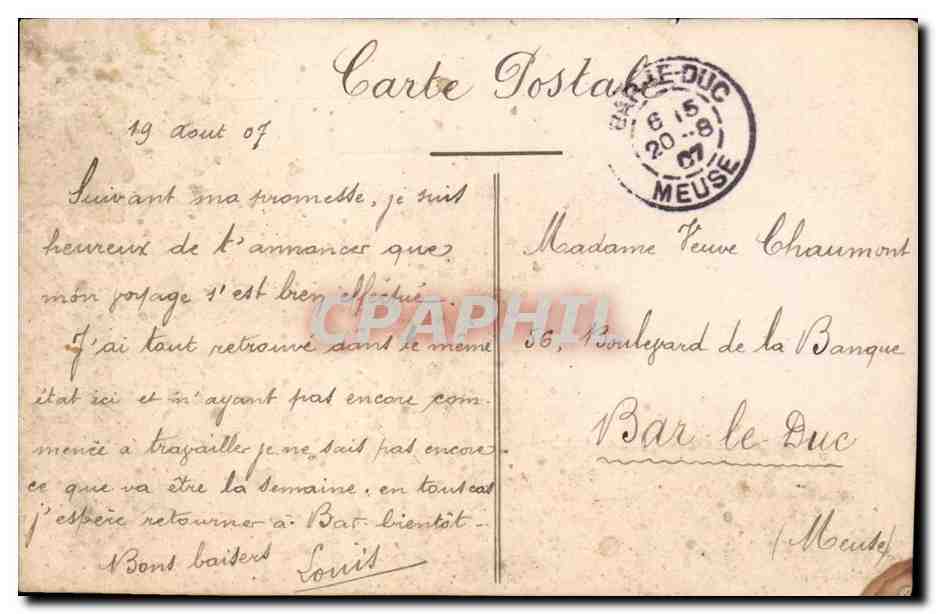 Carte Postale
BAR-LE-DUC
6 15
20 -8
07
MEUSE
19 Aout 07
Suivant ma promesse, je suis
heureux de t'annoncer que
mon voyage s'est bien effectué.
J'ai tout retrouvé dans le même
état ici et n'ayant pas encore com-
mencé à travailler je ne sais pas encore
ce que va être la semaine. en tous cas
j'espère retourner à Bar bientôt-
Bons baisers Louis
Madame Veuve Chaumont
56, Boulevard de la Banque
Bar le Duc
(Meuse)
CPAPHIL